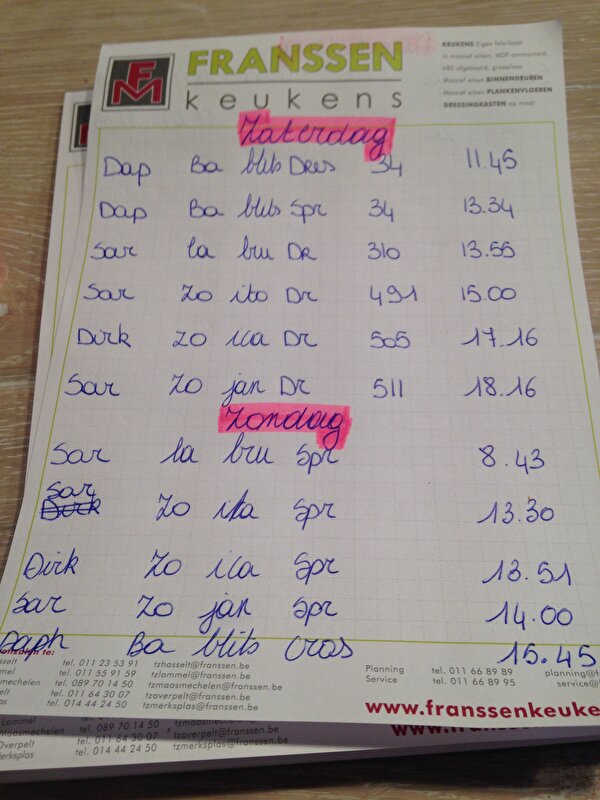 FM FRANSSEN
keukens
KEUKENS Eigen fabrikaat
in massief eiken, MDF-ommanteld,
ABS-afgeboord, greeploos
- Massief eiken BINNENDEUREN
- Massief eiken PLANKENVLOEREN
- DRESSINGKASTEN op maat
Zaterdag
Dap Ba blits Dres 34 11.45
Dap Ba blits Spr 34 13.34
Sar la bru Dr 310 13.55
Sar Zo ito Dr 491 15.00
Dirk Zo ica Dr 505 17.16
Sar Zo jan Dr 511 18.16
Zondag
Sar la bru Spr 8.43
Sar
Dirk Zo ita Spr 13.30
Dirk Zo ica Spr 13.51
Sar Zo jan Spr 14.00
Daph Ba blits Cros 15.45
tel. 011 23 53 91 tzhasselt@franssen.be
tel. 011 55 91 59 tzlommel@franssen.be
smechelen tel. 089 70 14 50 tzmaasmechelen@franssen.be
tel. 011 64 30 07 tzoverpelt@franssen.be
tel. 014 44 24 50 tzmerksplas@franssen.be
Planning tel. 011 66 89 89 planning@
Service tel. 011 66 89 95 service@
www.franssenkeuke
Lommel tel. 011
Maasmechelen tel. 089 70 14 50
Overpelt tel. 011 64 30 07
Merksplas tel. 014 44 24 50